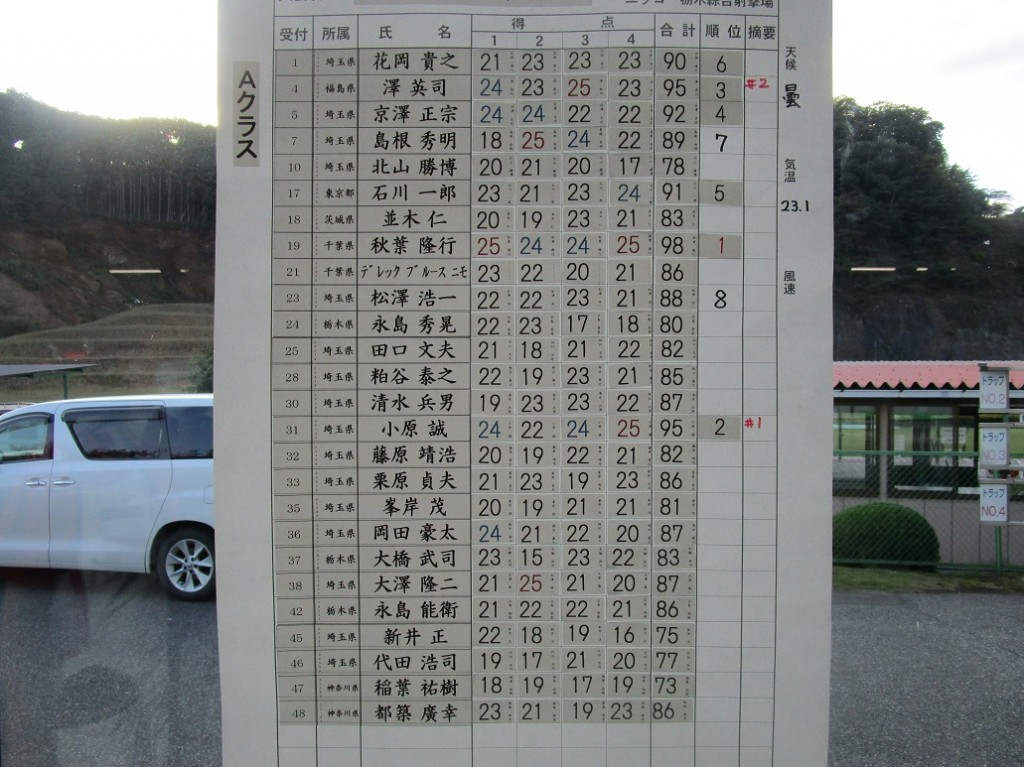 栃木綜合射撃場
Aクラス
受付 所属 氏名 得点 合計 順位 摘要
1 2 3 4
1 埼玉県 花岡 貴之 21 23 23 23 90 6
4 福島県 澤 英司 24 23 25 23 95 3 #2
5 埼玉県 京澤 正宗 24 24 22 22 92 4
7 埼玉県 島根 秀明 18 25 24 22 89 7
10 埼玉県 北山 勝博 20 21 20 17 78
17 東京都 石川 一郎 23 21 23 24 91 5
18 茨城県 並木 仁 20 19 23 21 83
19 千葉県 秋葉 隆行 25 24 24 25 98 1
21 千葉県 デレック ブルース ニモ 23 22 20 21 86
23 埼玉県 松澤 浩一 22 22 23 21 88 8
24 栃木県 永島 秀晃 22 23 17 18 80
25 埼玉県 田口 文夫 21 18 21 22 82
28 埼玉県 粕谷 泰之 22 19 23 21 85
30 埼玉県 清水 兵男 19 23 23 22 87
31 埼玉県 小原 誠 24 22 24 25 95 2 #1
32 埼玉県 藤原 靖浩 20 19 22 21 82
33 埼玉県 栗原 貞夫 21 23 19 23 86
35 埼玉県 峯岸 茂 20 19 21 21 81
36 埼玉県 岡田 豪太 24 21 22 20 87
37 栃木県 大橋 武司 23 15 23 22 83
38 埼玉県 大澤 隆二 21 25 21 20 87
42 栃木県 永島 能衛 21 22 22 21 86
45 埼玉県 新井 正 22 18 19 16 75
46 埼玉県 代田 浩司 19 17 21 20 77
47 神奈川県 稲葉 祐樹 18 19 17 19 73
48 神奈川県 都築 廣幸 23 21 19 23 86
天候
曇
気温
23.1
風速
トラップ
NO.2
トラップ
NO.3
トラップ
NO.4